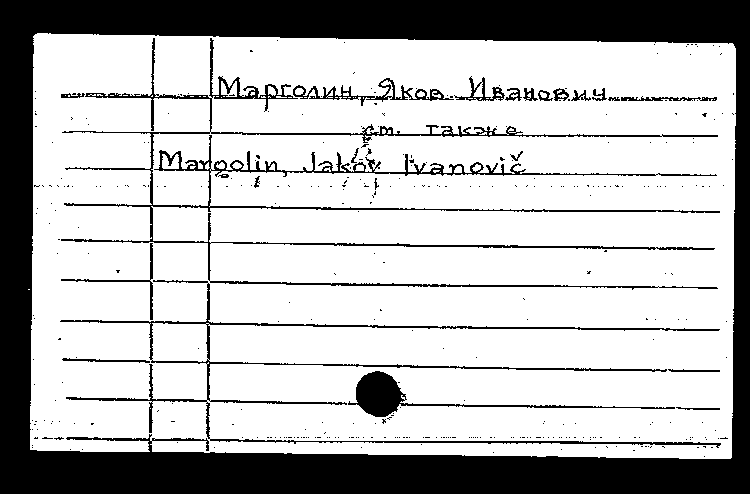 Марголин, Яков Иванович
см. также
Margolin, Jakov Ivanovič